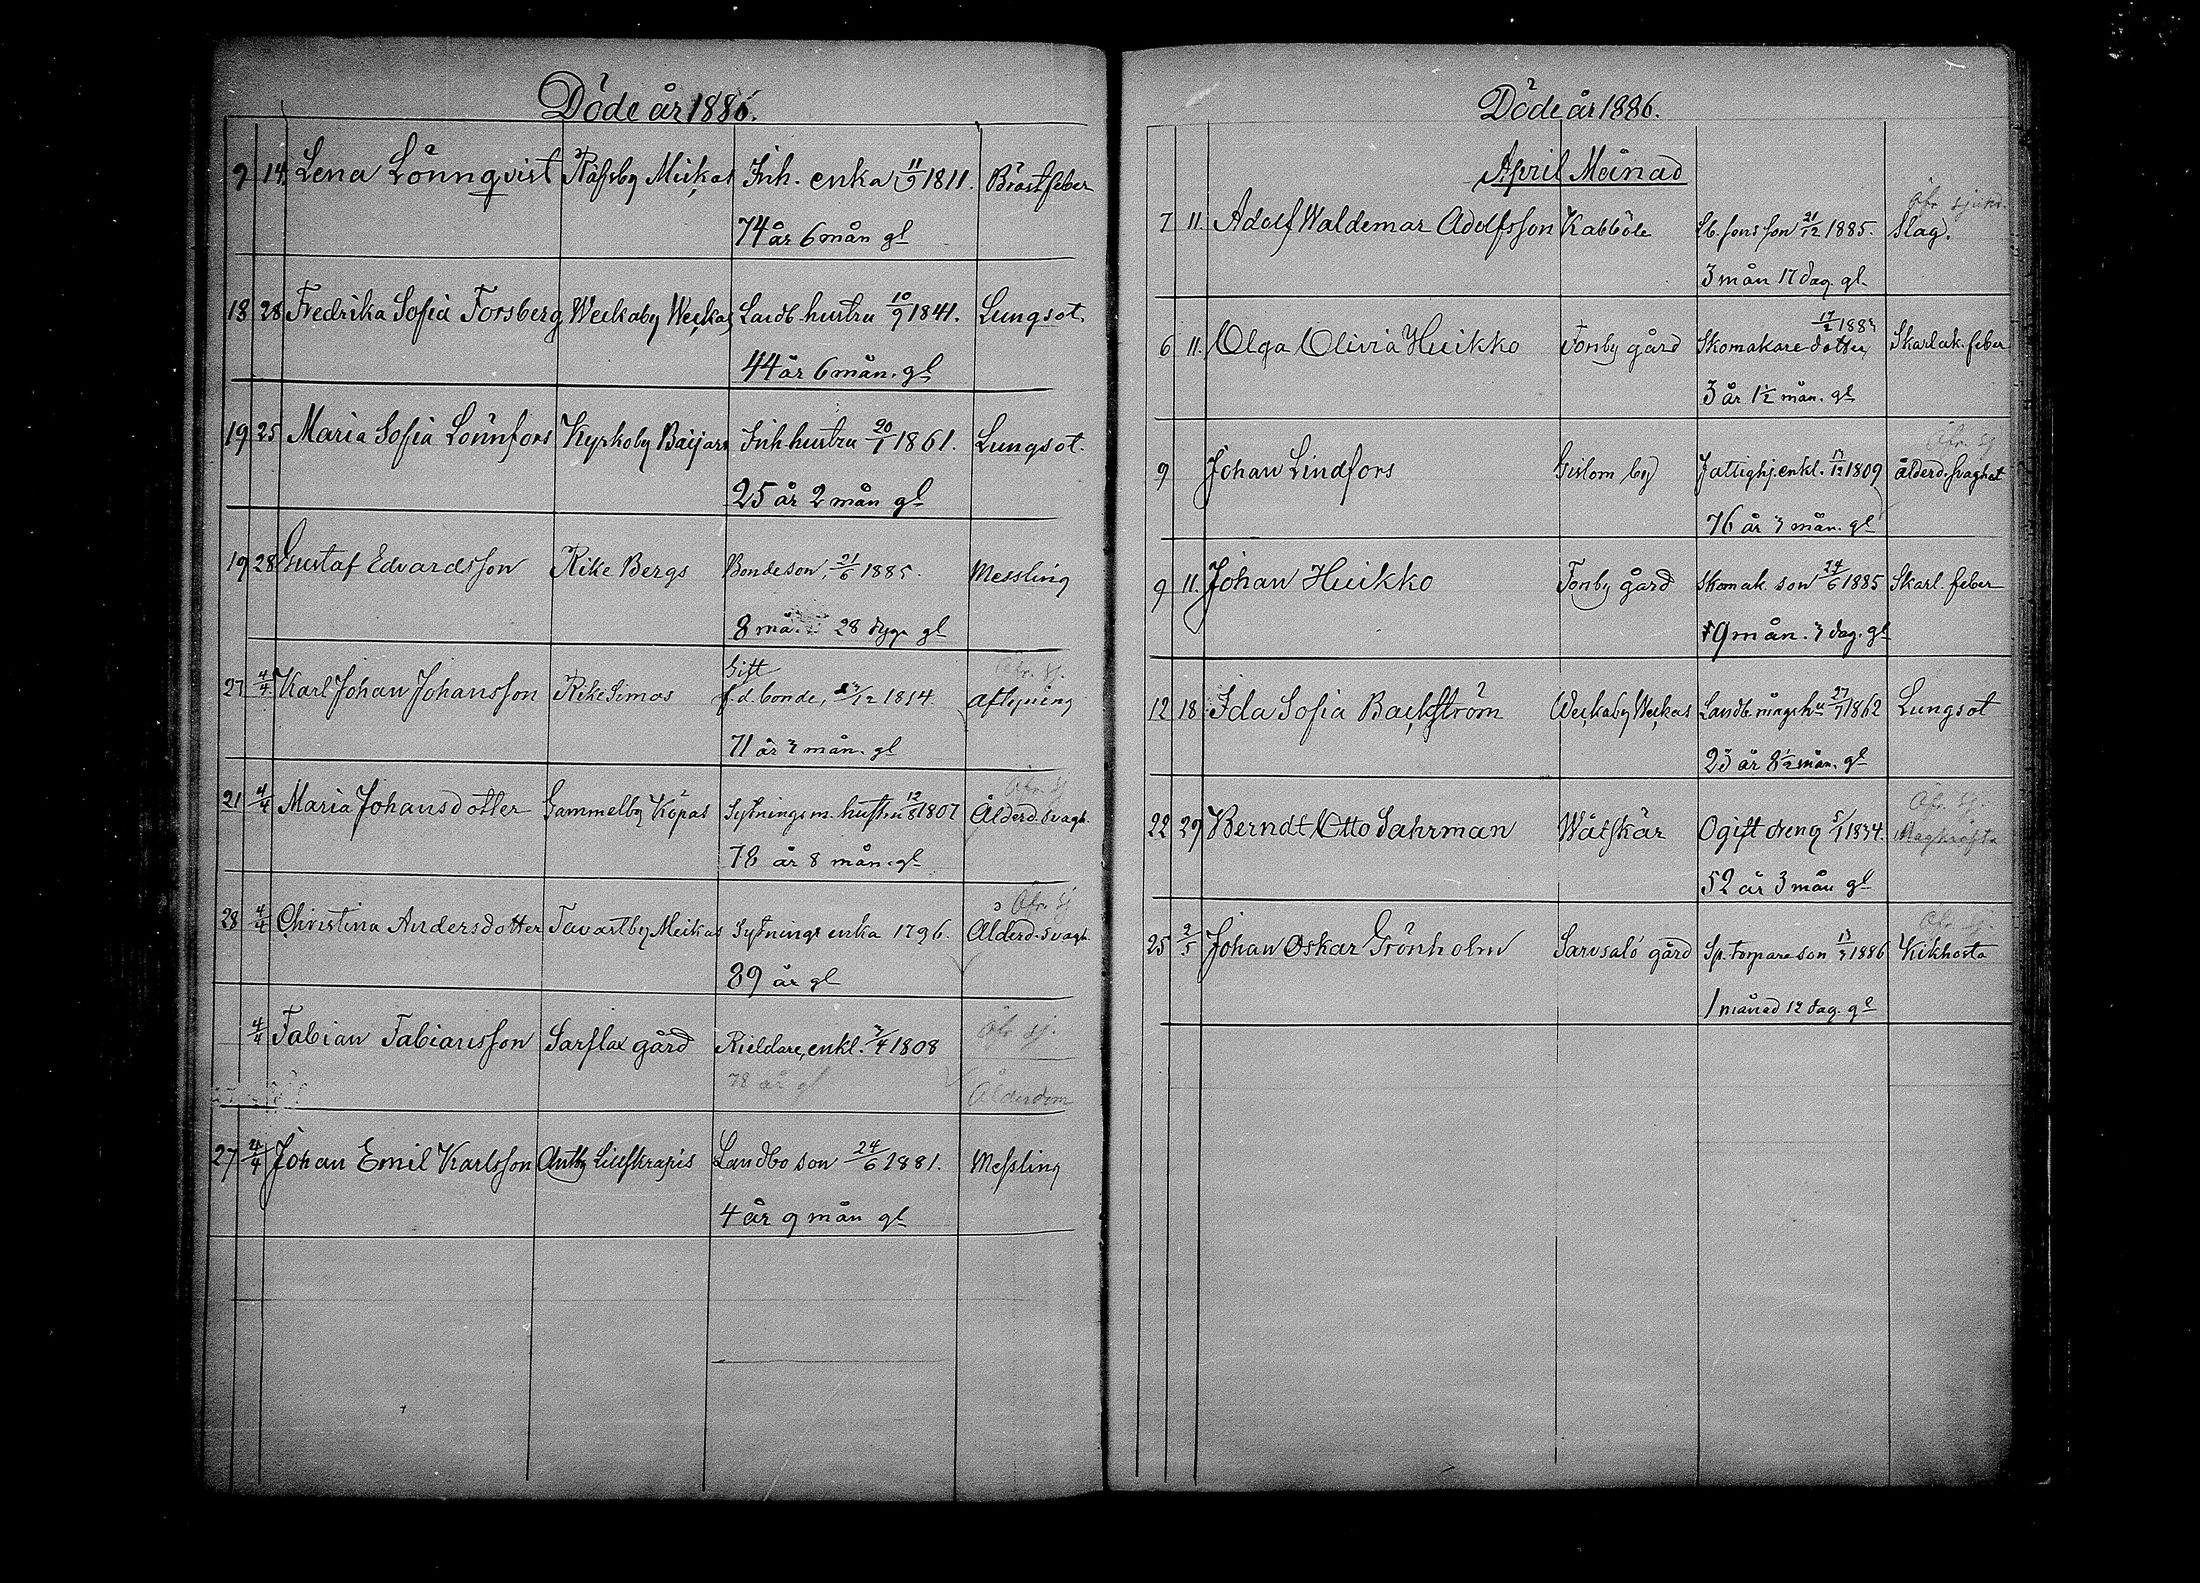 Döde år 1886.
9 14. Lena Lönnqvist Räfsby Mickas Inh. enka 11/9 1811. Bröstfeber
74 år 6 mån gl
18 28 Fredrika Sofia Forsberg Weckaby Weckas Landb. hustru 10/9 1841. Lungsot.
44 år 6 mån. gl
19 25 Maria Sofia Lönnfors Kyrkoby Baijars Inh. hustru 20/1 1861. Lungsot.
25 år 2 mån gl
19 28 Gustaf Edvardsson Rike Bergs Bondeson, 21/6 1885. Messling
8 må. 28 dygn gl
Gift Öfr. sj.
27 4/4 Karl Johan Johansson Rike Simas f.d. bonde, /12 1814. aftyning
71 år 3 mån. gl
Öfr. sj
21 4/4 Maria Johansdotter GammelbyKöpas Sytningsm. hustru 12/8 1807 Ålderd. svagh.
78 år 8 mån. gl
Öfr. sj
28 4/4 Christina Andersdotter Tavastby Meikas Sytnings enka 1796. Ålderd. svagh.
89 år gl
4/4 Fabian Fabiansson Sarflax gård enkl. 7/4 1808 Öfr sj.
78 år gl Ålderdom
27 4/4 Johan Emil Karlsson Antby Lillskrapis Landbo son 24/6 1881. Messling
4 år 9 mån gl
Döde år 1886.
April Månad
Öfr sjukd.
7 11. Adolf Waldemar Adolfsson Kabböle Lb. sons son 21/12 1885. Slag.
3 mån 17 dag. gl.
17/2 1883
6 11. Olga Olivia Huikko Tonby gård Skomakare dotter, Skarlak. feber
3 år 1 1/2 mån. gl
Öfr. sj
9 Johan Lindfors Gislom by Fattighj. enkl. /12 1809 ålderd. svaghet
76 år 3 mån. gl
9 11. Johan Huikko Tonby gård Skomak. son 24/6 1885 Skarl. feber
9 mån. 3 dag. gl
12 18 Ida Sofia Backström Weckaby Weckas Landb. mågs hu 27/7 1862 Lungsot
23 år 8 1/2 mån. gl
Öfr. sj.
22 29 Berndt Otto Sahrman Wåtskär Ogift dreng 5/1 1834. Magkräfta
52 år 3 mån gl
Öfr. sj.
25 2/5 Johan Oskar Grönholm Sarvsalö gård Sp. torpare son 13/3 1886 Kikhosta
1 månad 12 dag. gl